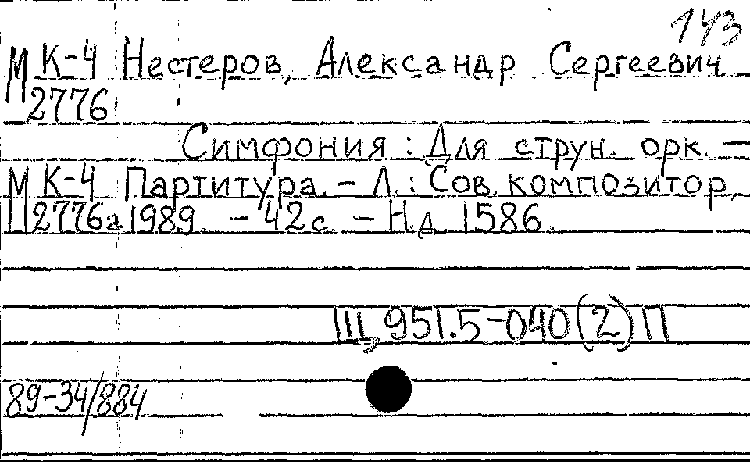 143
М К-4 Нестеров, Александр Сергеевич
2776
Симфония : Для струн. орк. -
М К-4 Партитура. - Л. : Сов. композитор,
2776а 1989. - 42 с. - Н.д. 1586.
Щ 951.5-040(2)П
89-34/884